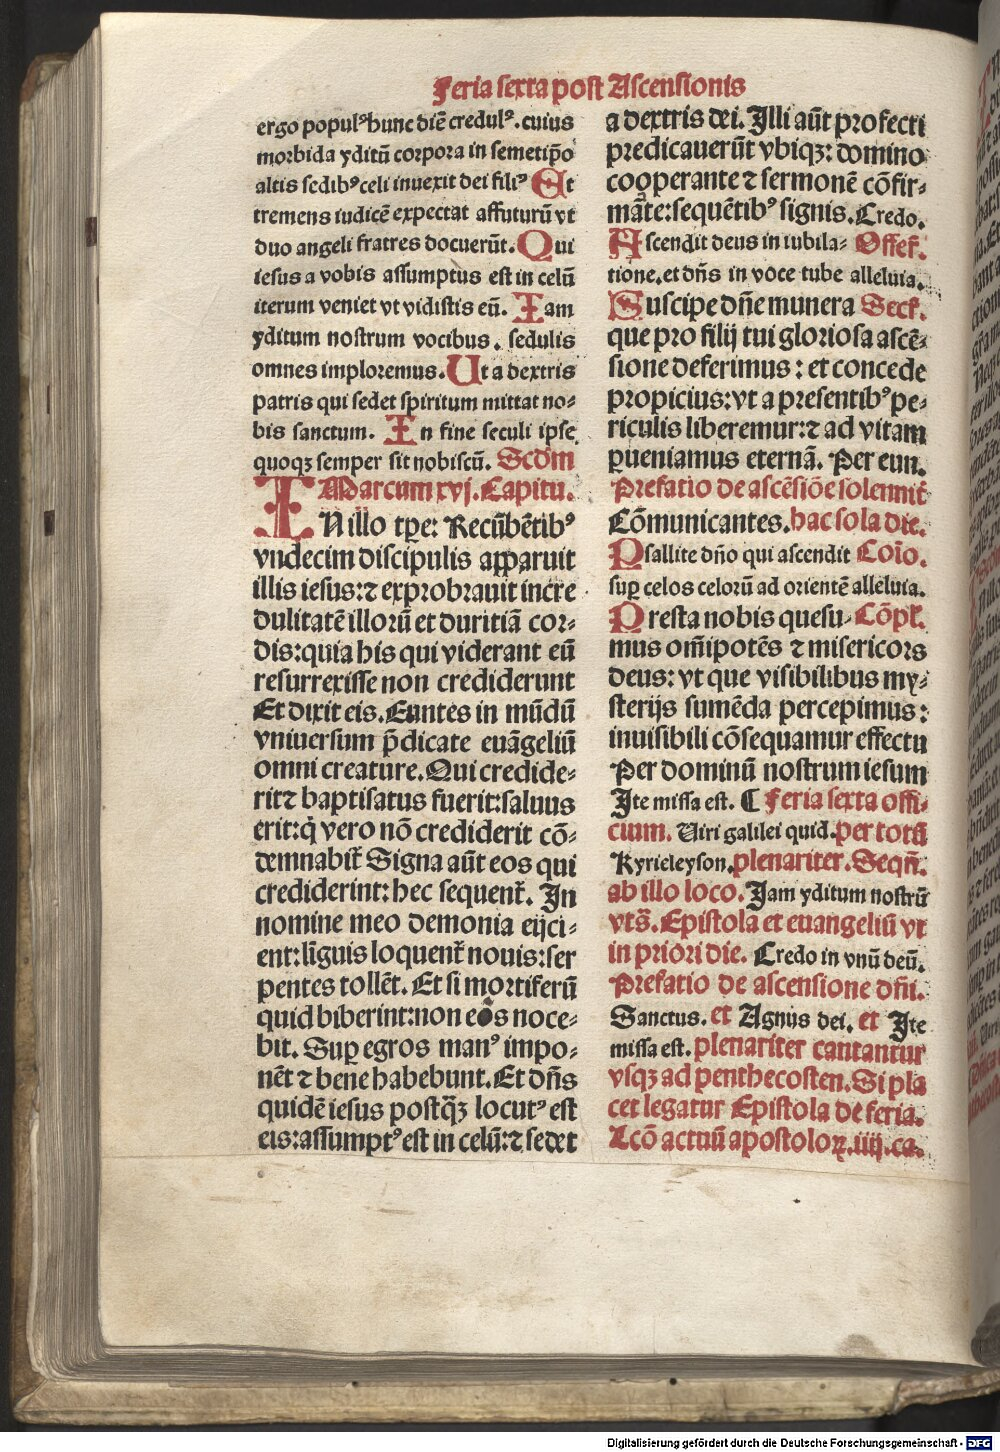 Feria sexta post Ascensionis
ergo populꝰ hunc diē credulꝰ. cuius
morbida yditū corpora in semetip̄o
altis sedibꝰ celi inuexit dei filiꝰ Et
tremens iudicē expectat affuturū vt
duo angeli fratres docuerūt. Qui
iesus a vobis assumptus est in celū
iterum veniet vt vidistis eū. Iam
yditum nostrum vocibus. sedulis
omnes imploremus. Ut a dextris
patris qui sedet spiritum mittat no⸗
bis sanctum. In fine seculi ipse
quoqꝫ semper sit nobiscū. Scdm
Marcum xvj. Capitu.
IN illo tꝑe: Recūbētibꝰ
vndecim discipulis apparuit
illis iesus: ⁊ exprobrauit incre
dulitatē illorū et duritiā cor⸗
dis: quia his qui viderant eū
resurrexisse non crediderunt
Et dixit eis. Euntes in mūdū
vniuersum p̄dicate euāgeliū
omni creature. Qui credide⸗
rit ⁊ baptisatus fuerit: saluus
erit: q̇ vero nō crediderit cō⸗
demnabit̄ Signa aūt eos qui
crediderint: hec sequent̄. In
nomine meo demonia eijci⸗
ent: līguis loquent̄ nouis: ser
pentes tollēt. Et si mortiferū
quid biberint: non eos noce⸗
bit. Suꝑ egros manꝰ impo⸗
nēt ⁊ bene habebunt. Et dn̄s
quidē iesus postq̄ꝫ locutꝰ est
eis: assumptꝰ est in celū: ⁊ sedet
a dextris dei. Illi aūt profecti
predicauerūt vbiqꝫ: domino
cooꝑante ⁊ sermonē cōfir⸗
māte: sequētibꝰ signis. Credo.
Ascendit deus in iubila⸗ Offer̄.
tione. et dn̄s in voce tube alleluia.
Suscipe dn̄e munera Secr̄.
que pro filij tui gloriosa ascē⸗
sione deferimus: et concede
propicius: vt a presentibꝰ pe⸗
riculis liberemur: ⁊ ad vitam
ꝑueniamus eternā. Per eun.
Prefatio de ascēsiōe solennit̄
Cōmunicantes. hac sola die.
Psallite dn̄o qui ascendit Coīo.
suꝑ celos celorū ad orientē alleluia.
Presta nobis quesu⸗ Cōpl̄.
mus om̄ipotēs ⁊ misericors
deus: vt que visibilibus my⸗
sterijs sumēda percepimus:
inuisibili cōsequamur effectu
Per dominū nostrum iesum
Ite missa est. ¶ Feria sexta offi⸗
cium. Viri galilei quid. per totū
Kyrieleyson. plenariter. Seqn̄.
ab illo loco. Iam yditum nostrū
vts̄. Epistola et euangeliū vt
in priori die. Credo in vnū deū.
Prefatio de ascensione dn̄i.
Sanctus. et Agnus dei. et Ite
missa est. plenariter cantantur
vsqꝫ ad penthecosten. Si pla
cet legatur Epistola de feria.
Lcō actuū apostoloꝝ. iiij. ca.
Digitalisierung gefördert durch die Deutsche Forschungsgemeinschaft - DFG